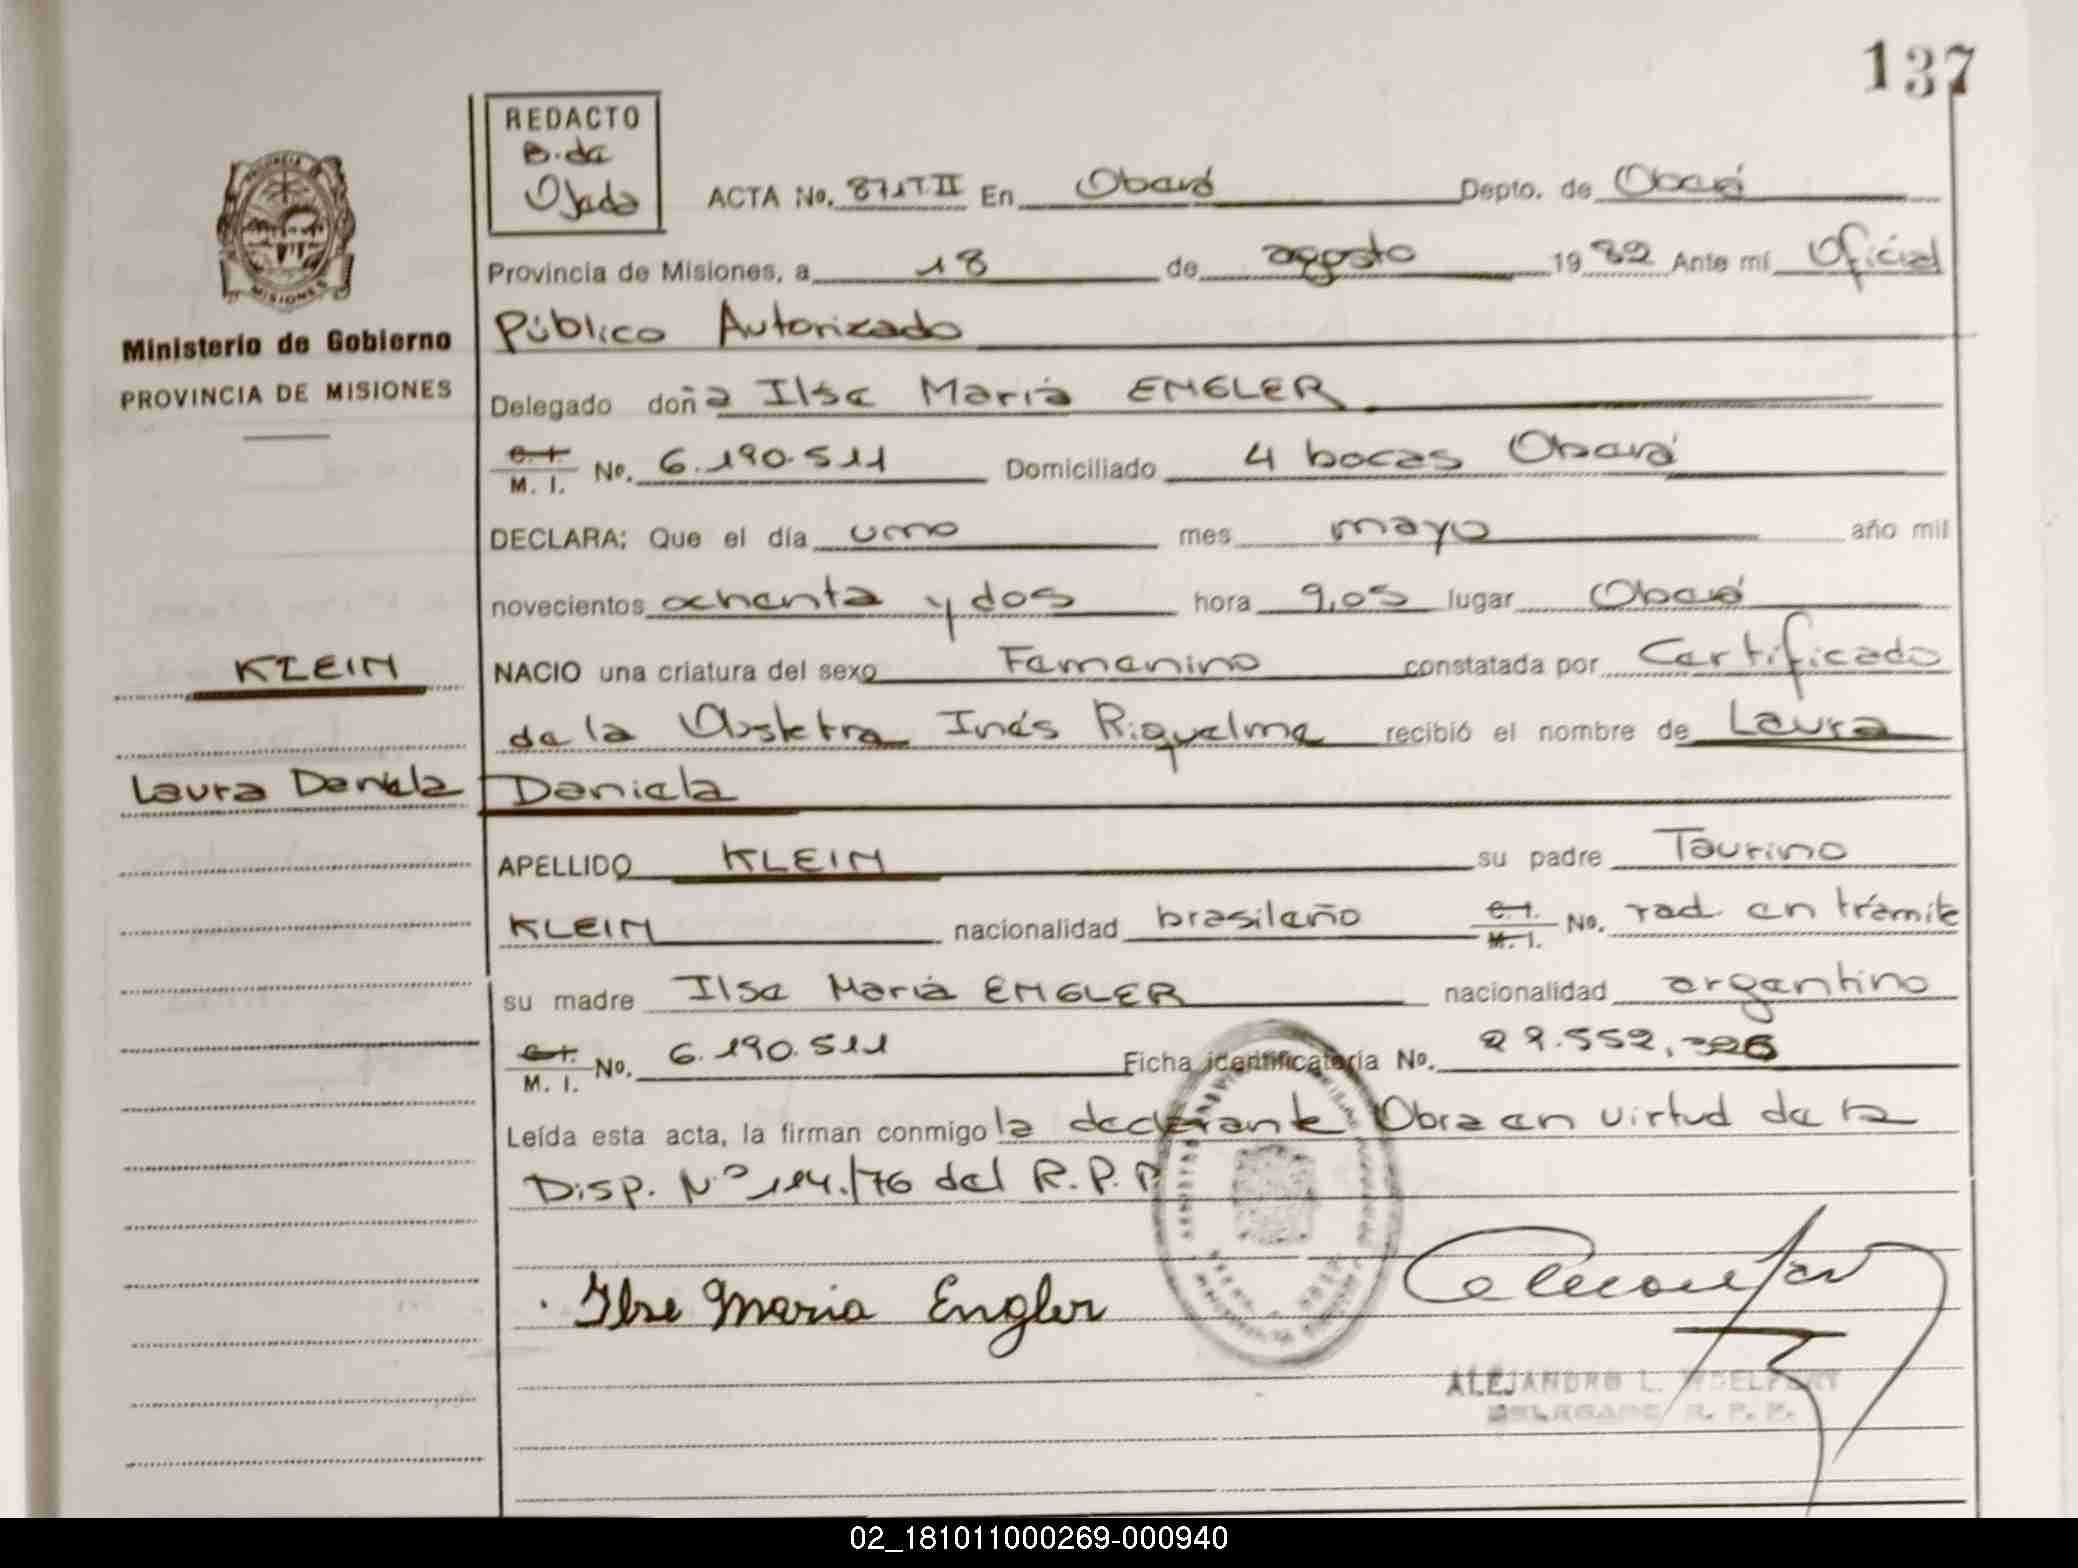 137
REDACTO
B. de
Ojeda
ACTA No. 871 T. II En Oberá Depto. de Oberá
Provincia de Misiones, a 18 de agosto 1982 Ante mí Oficial
Público Autorizado
Ministerio de Gobierno
PROVINCIA DE MISIONES
Delegado doña Ilse María ENGLER
C. I. M. I. No. 6.190.511 Domiciliado 4 bocas Oberá
DECLARA: Que el día uno mes mayo año mil
novecientos ochenta y dos hora 9,05 lugar Oberá
KLEIN
NACIO una criatura del sexo Femenino constatada por Certificado
de la Obstetra Inés Riquelme recibió el nombre de Laura
Laura Daniela
Daniela
APELLIDO KLEIN su padre Taurino
KLEIN nacionalidad brasileño C. I. M. I. No. rad. en trámite
su madre Ilse María ENGLER nacionalidad argentino
C. I. M. I. No. 6.190.511 Ficha identificatoria No. 29.552.326
Leída esta acta, la firman conmigo la declarante Obra en virtud de la
Disp. Nº 114./76 del R.P.P
Ilse Maria Engler
ALEJANDRO L.
DELEGADO R. P. P.
02_181011000269-000940